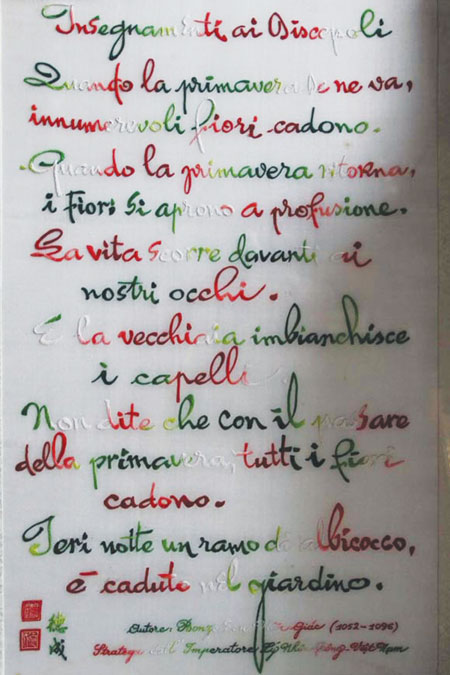 Insegnamenti ai Discepoli
Quando la primavera se ne va,
innumerevoli fiori cadono.
Quando la primavera ritorna,
i fiori si aprono a profusione.
La vita scorre davanti ai
nostri occhi.
E la vecchiaia imbianchisce
i capelli.
Non dite che con il passare
della primavera, tutti i fiori
cadono.
Ieri notte un ramo di albicocco,
è caduto nel giardino.
Autore: Bonzo Giác (1052-1096)
Stratega dell'Imperatore Lý Nhân Tông - Việt Nam